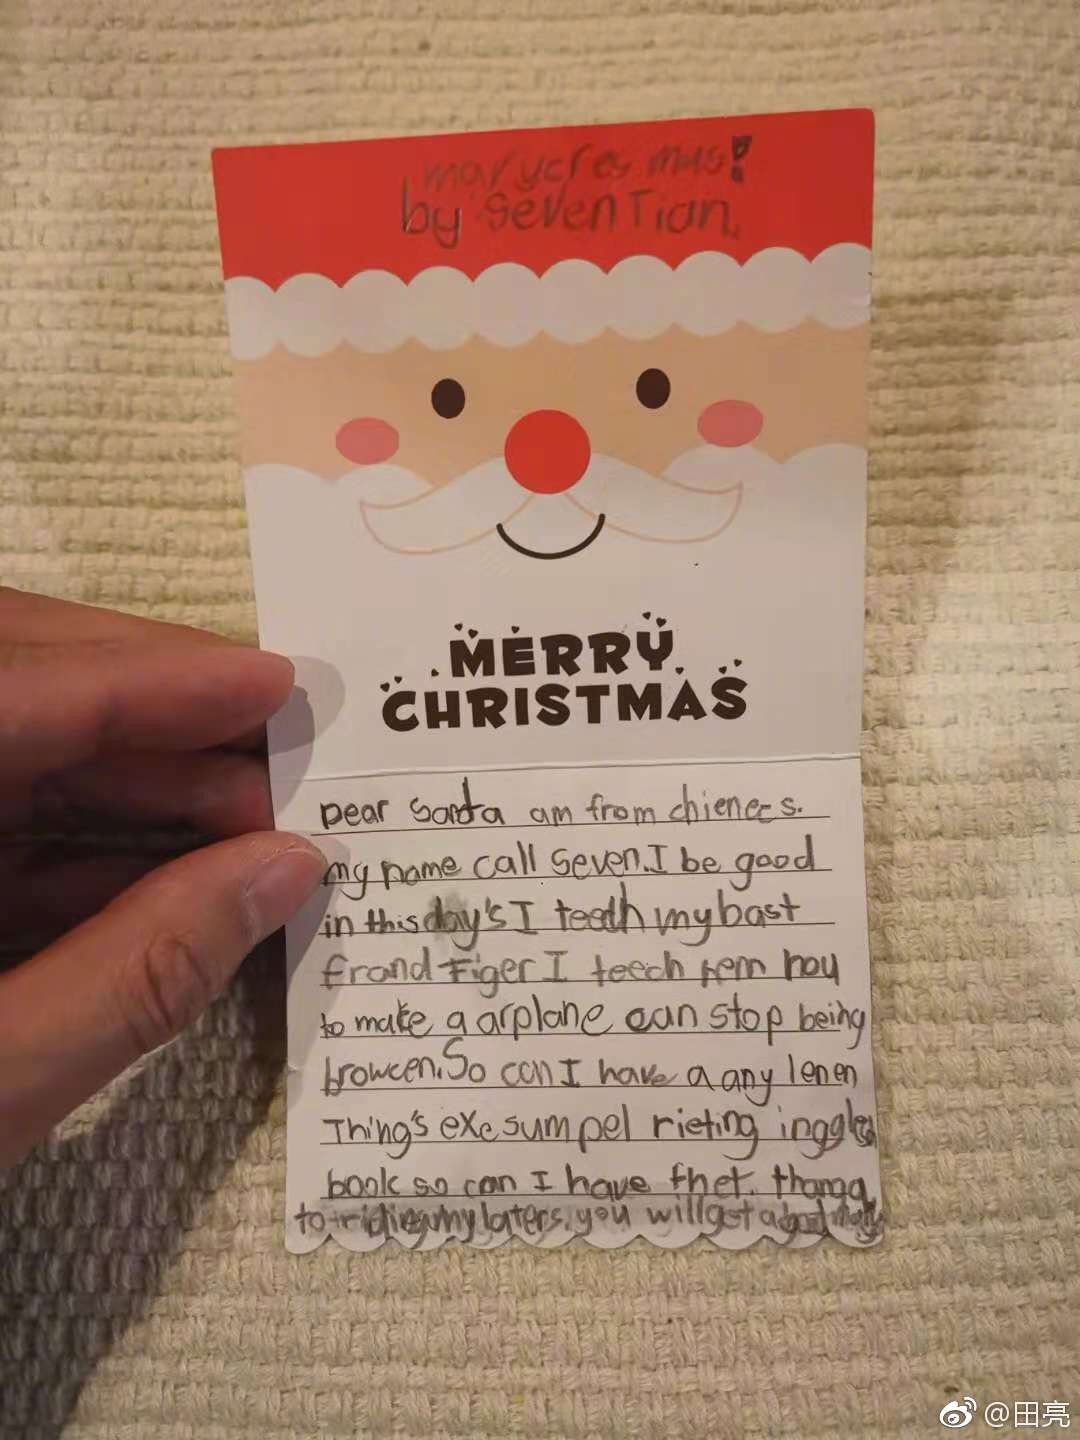 marycres mus!
by Seven Tian.
MERRY
CHRISTMAS
Dear Santa am from chienees.
my name call Seven. I be good
in this day's I teeth my bast
frand Figer I teech hem hou
to make a arplane can stop being
browcen. So can I have a any lenen
Thing's exe sumpel rieting ingglees
book so can I have fhet. thanga
to ridieg my laters. you will get a
@田亮